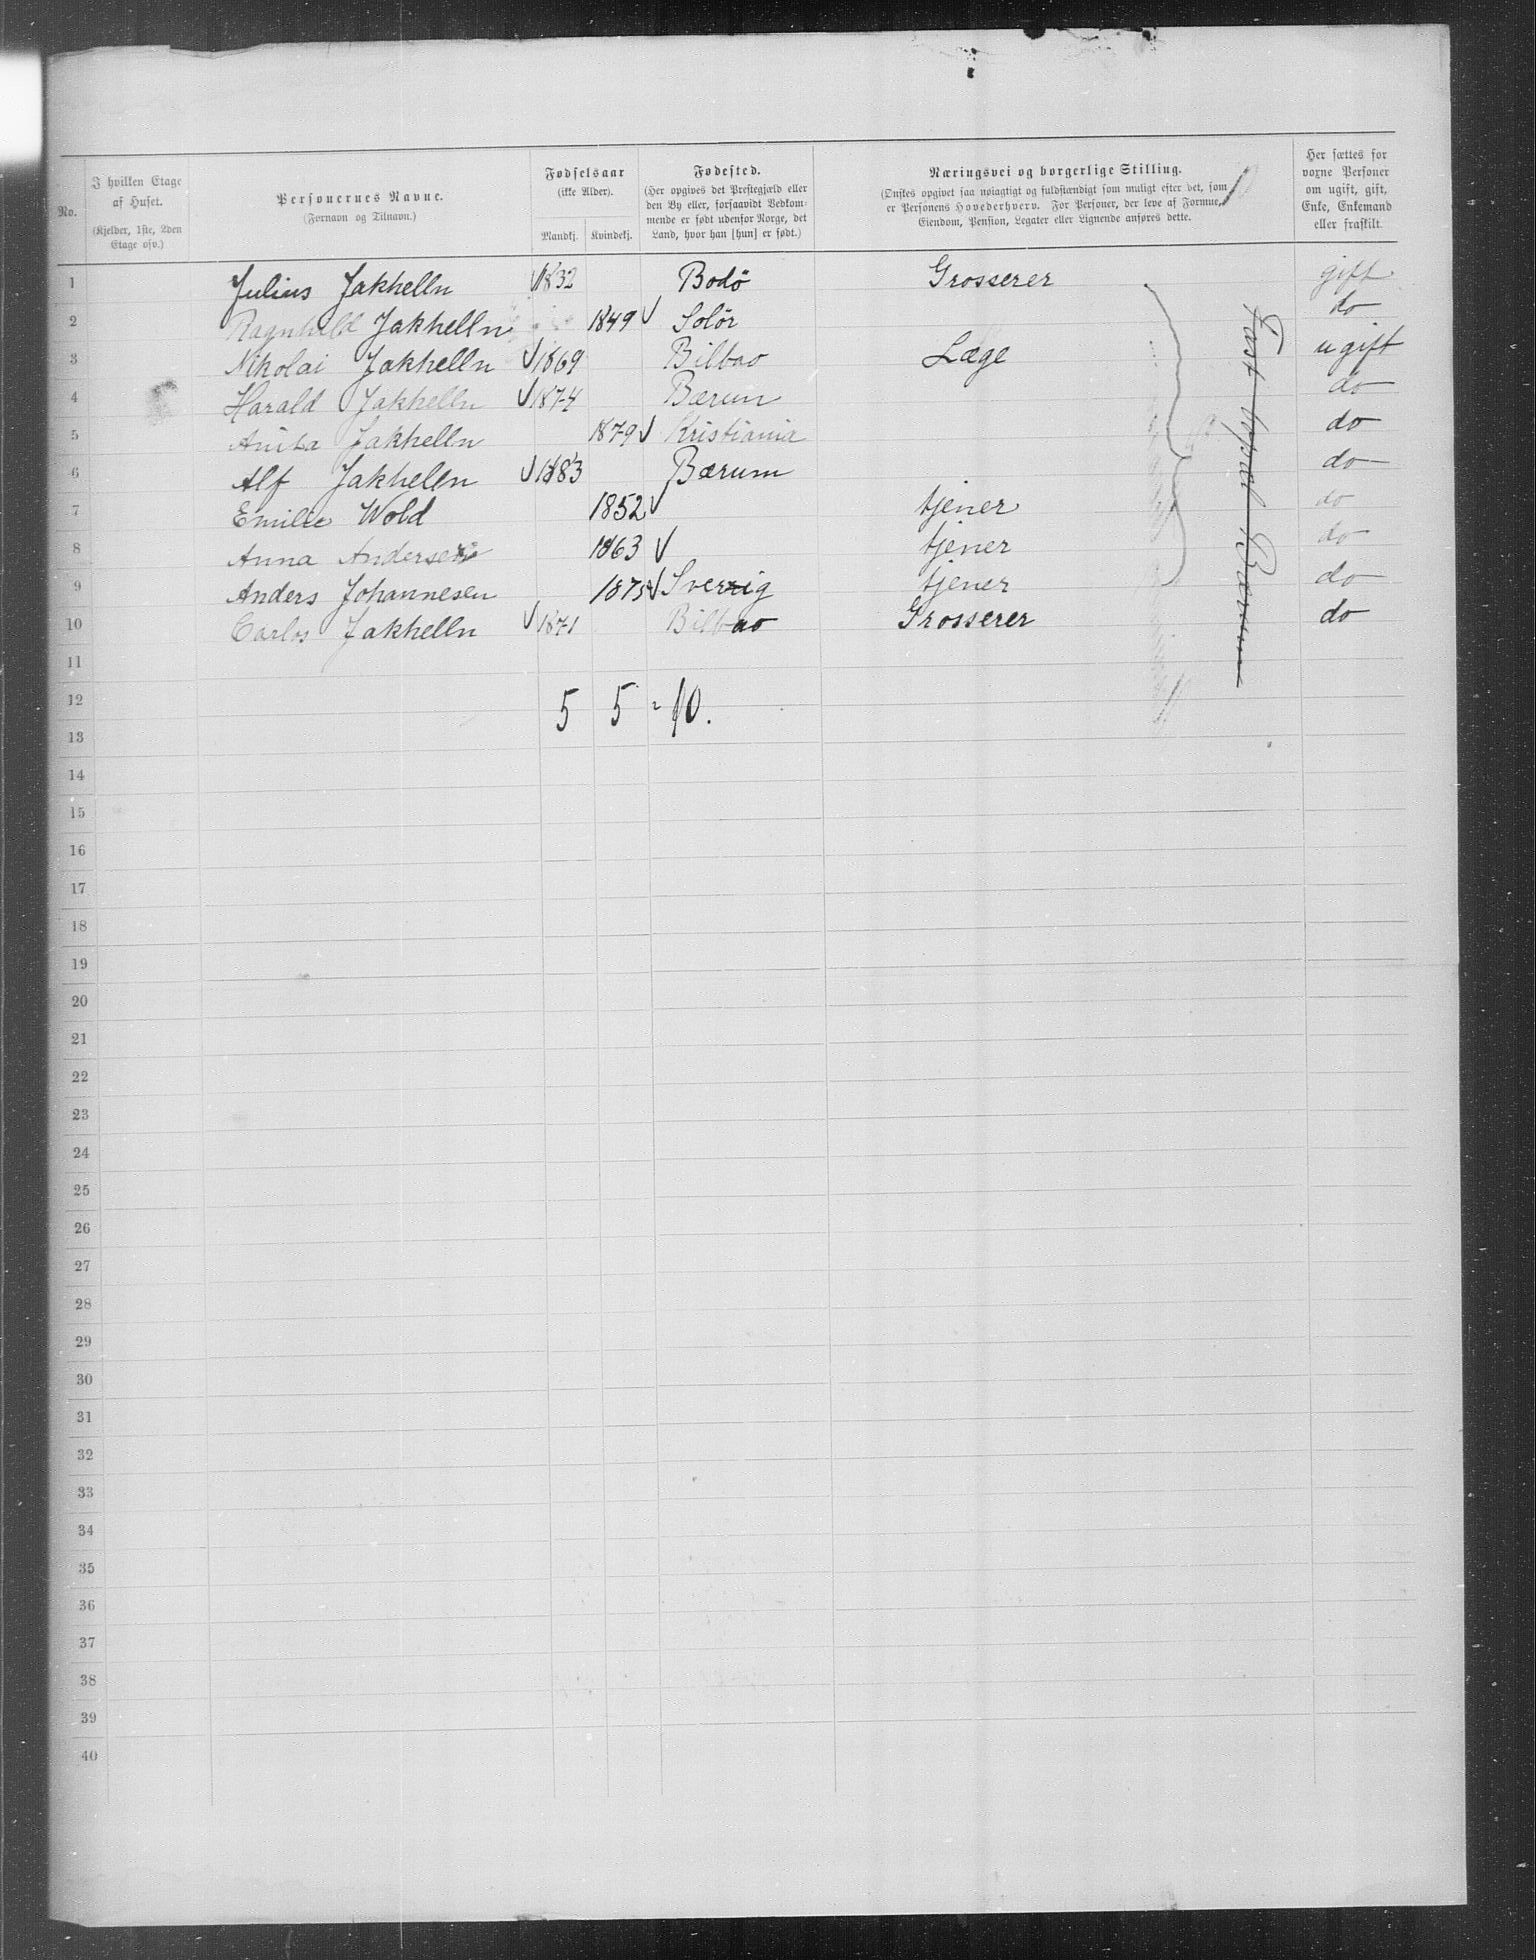 No. I hvilken Etage af Huset. (Kjelder, 1ste, 2den Etage osv.) Personernes Navne. (Fornavn og Tilnavn.) Fødselsaar (ikke Alder). Mandkj. Kvindekj. Fødested. (Her opgives det Prestegjæld eller den By eller, forsaavidt Vedkommende er født udenfor Norge, det Land, hvor han [hun] er født.) Næringsvei og borgerlige Stilling. (Ønskes opgivet saa nøiagtigt og fuldstændigt som muligt efter det, som er Personens Hovederhverv. For Personer, der leve af Formue, Eiendom, Pension, Legater eller Lignende anføres dette. Her sættes for voxne Personer om ugift, gift, Enke, Enkemand eller fraskilt.
1 Julius Jakhelln 1832 Bodö Grosserer gift
2 Ragnhild Jakhelln 1849 Solör do
3 Nikolai Jakhelln 1869 Bilbao Læge ugift
4 Harald Jakhelln 1874 Bærum do
5 Anita Jakhelln 1879 Kristiania do
6 Alf Jakhelln 1883 Bærum do
7 Emilie Wold 1852 tjener do
8 Anna Andersen 1863 tjener do
9 Anders Johannesen 1875 Sverrig tjener do
10 Carlos Jakhelln 1871 Bilbao Grosserer do
11
12 5 5 = 10.
13
14
15
16
17
18
19
20
21
22
23
24
25
26
27
28
29
30
31
32
33
34
35
36
37
38
39
40
Fast Bærum